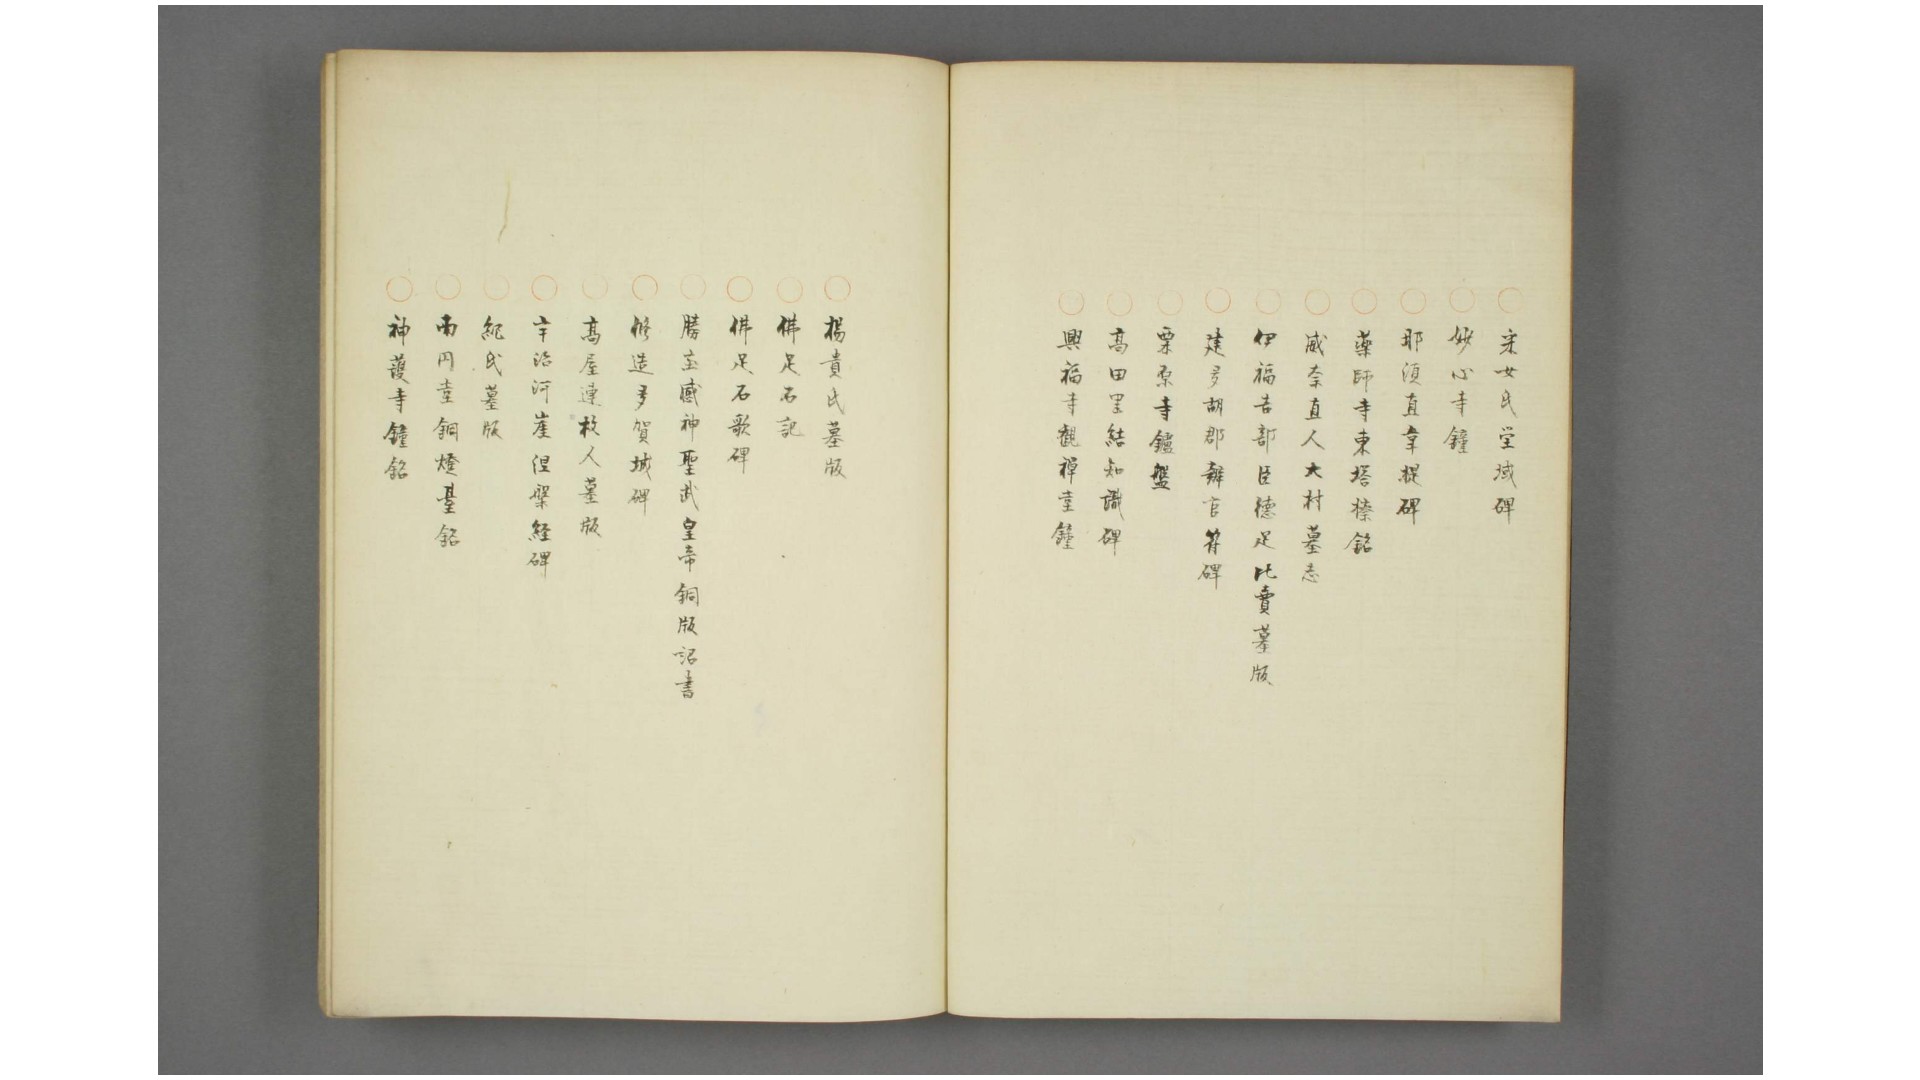 ○采女氏塋域碑
○妙心寺鐘
○耶須直韋提碑
○薬師寺東塔檫銘
○威奈真人大村墓志
○伊福吉部臣德足比賣墓版
○建多胡郡辨官符碑
○栗原寺鑪盤
○高田里結知識碑
○興福寺觀禅堂鐘
○楊貴氏墓版
○佛足石記
○佛足石歌碑
○勝宝感神聖武皇帝銅版詔書
○修造多賀城碑
○高屋連枚人墓版
○宇治河崖涅槃経碑
○紀氏墓版
○南円堂銅燈臺銘
○神護寺鐘銘